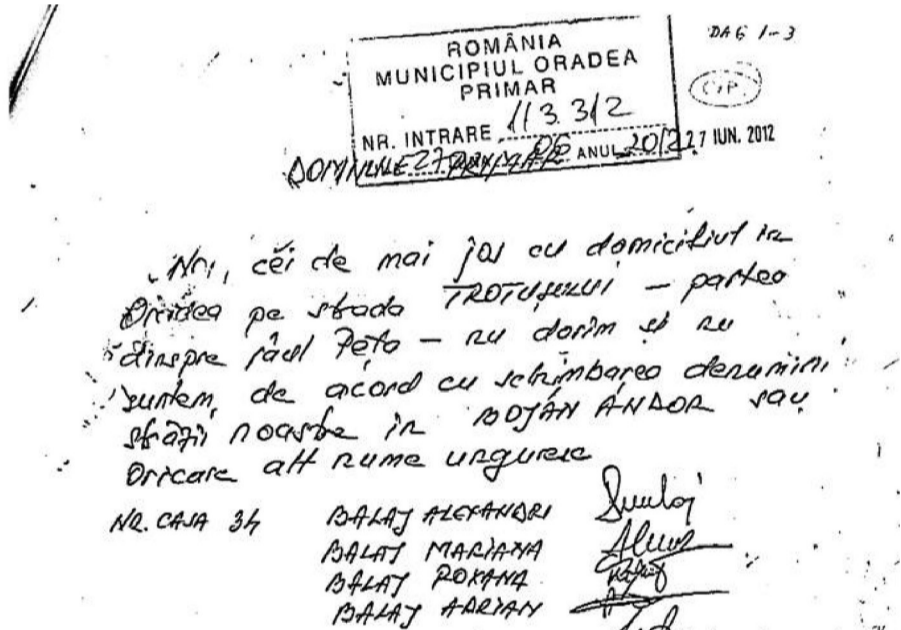 DAG 1-3
ROMÂNIA
MUNICIPIUL ORADEA
PRIMAR
CIP.
NR. INTRARE 113312
27 06 ANUL 2012 27 IUN. 2012
DOMNULE PRIMAR
Noi, cei de mai jos cu domiciliul in
Oradea pe strada TROTUȘULUI – partea
dinspre pâul Peța – nu dorim și nu
suntem, de acord cu schimbarea denumirii
străzii noastre in BOJÁN ÁNDOR sau
Oricare alt nume unguresc
NR. CASA 34 BALAJ ALEXANDRU
BALAJ MARIANA
BALAJ ROXANA
BALAJ ADRIAN